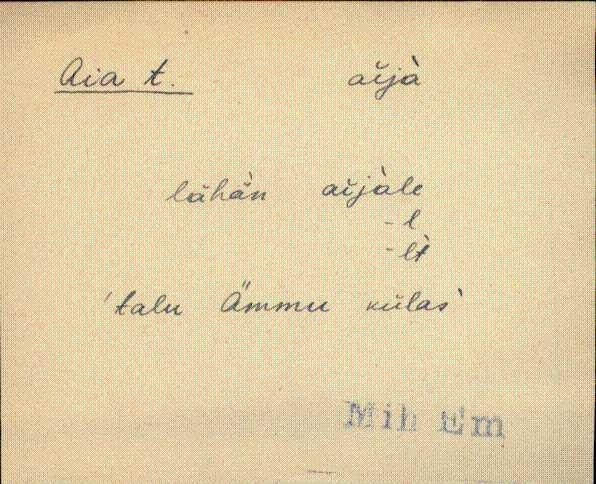 Aia t. aĭjà
lähä̀n aĭjàle
-l
-lt̀
'talu Ämmu külas'
Mih Em